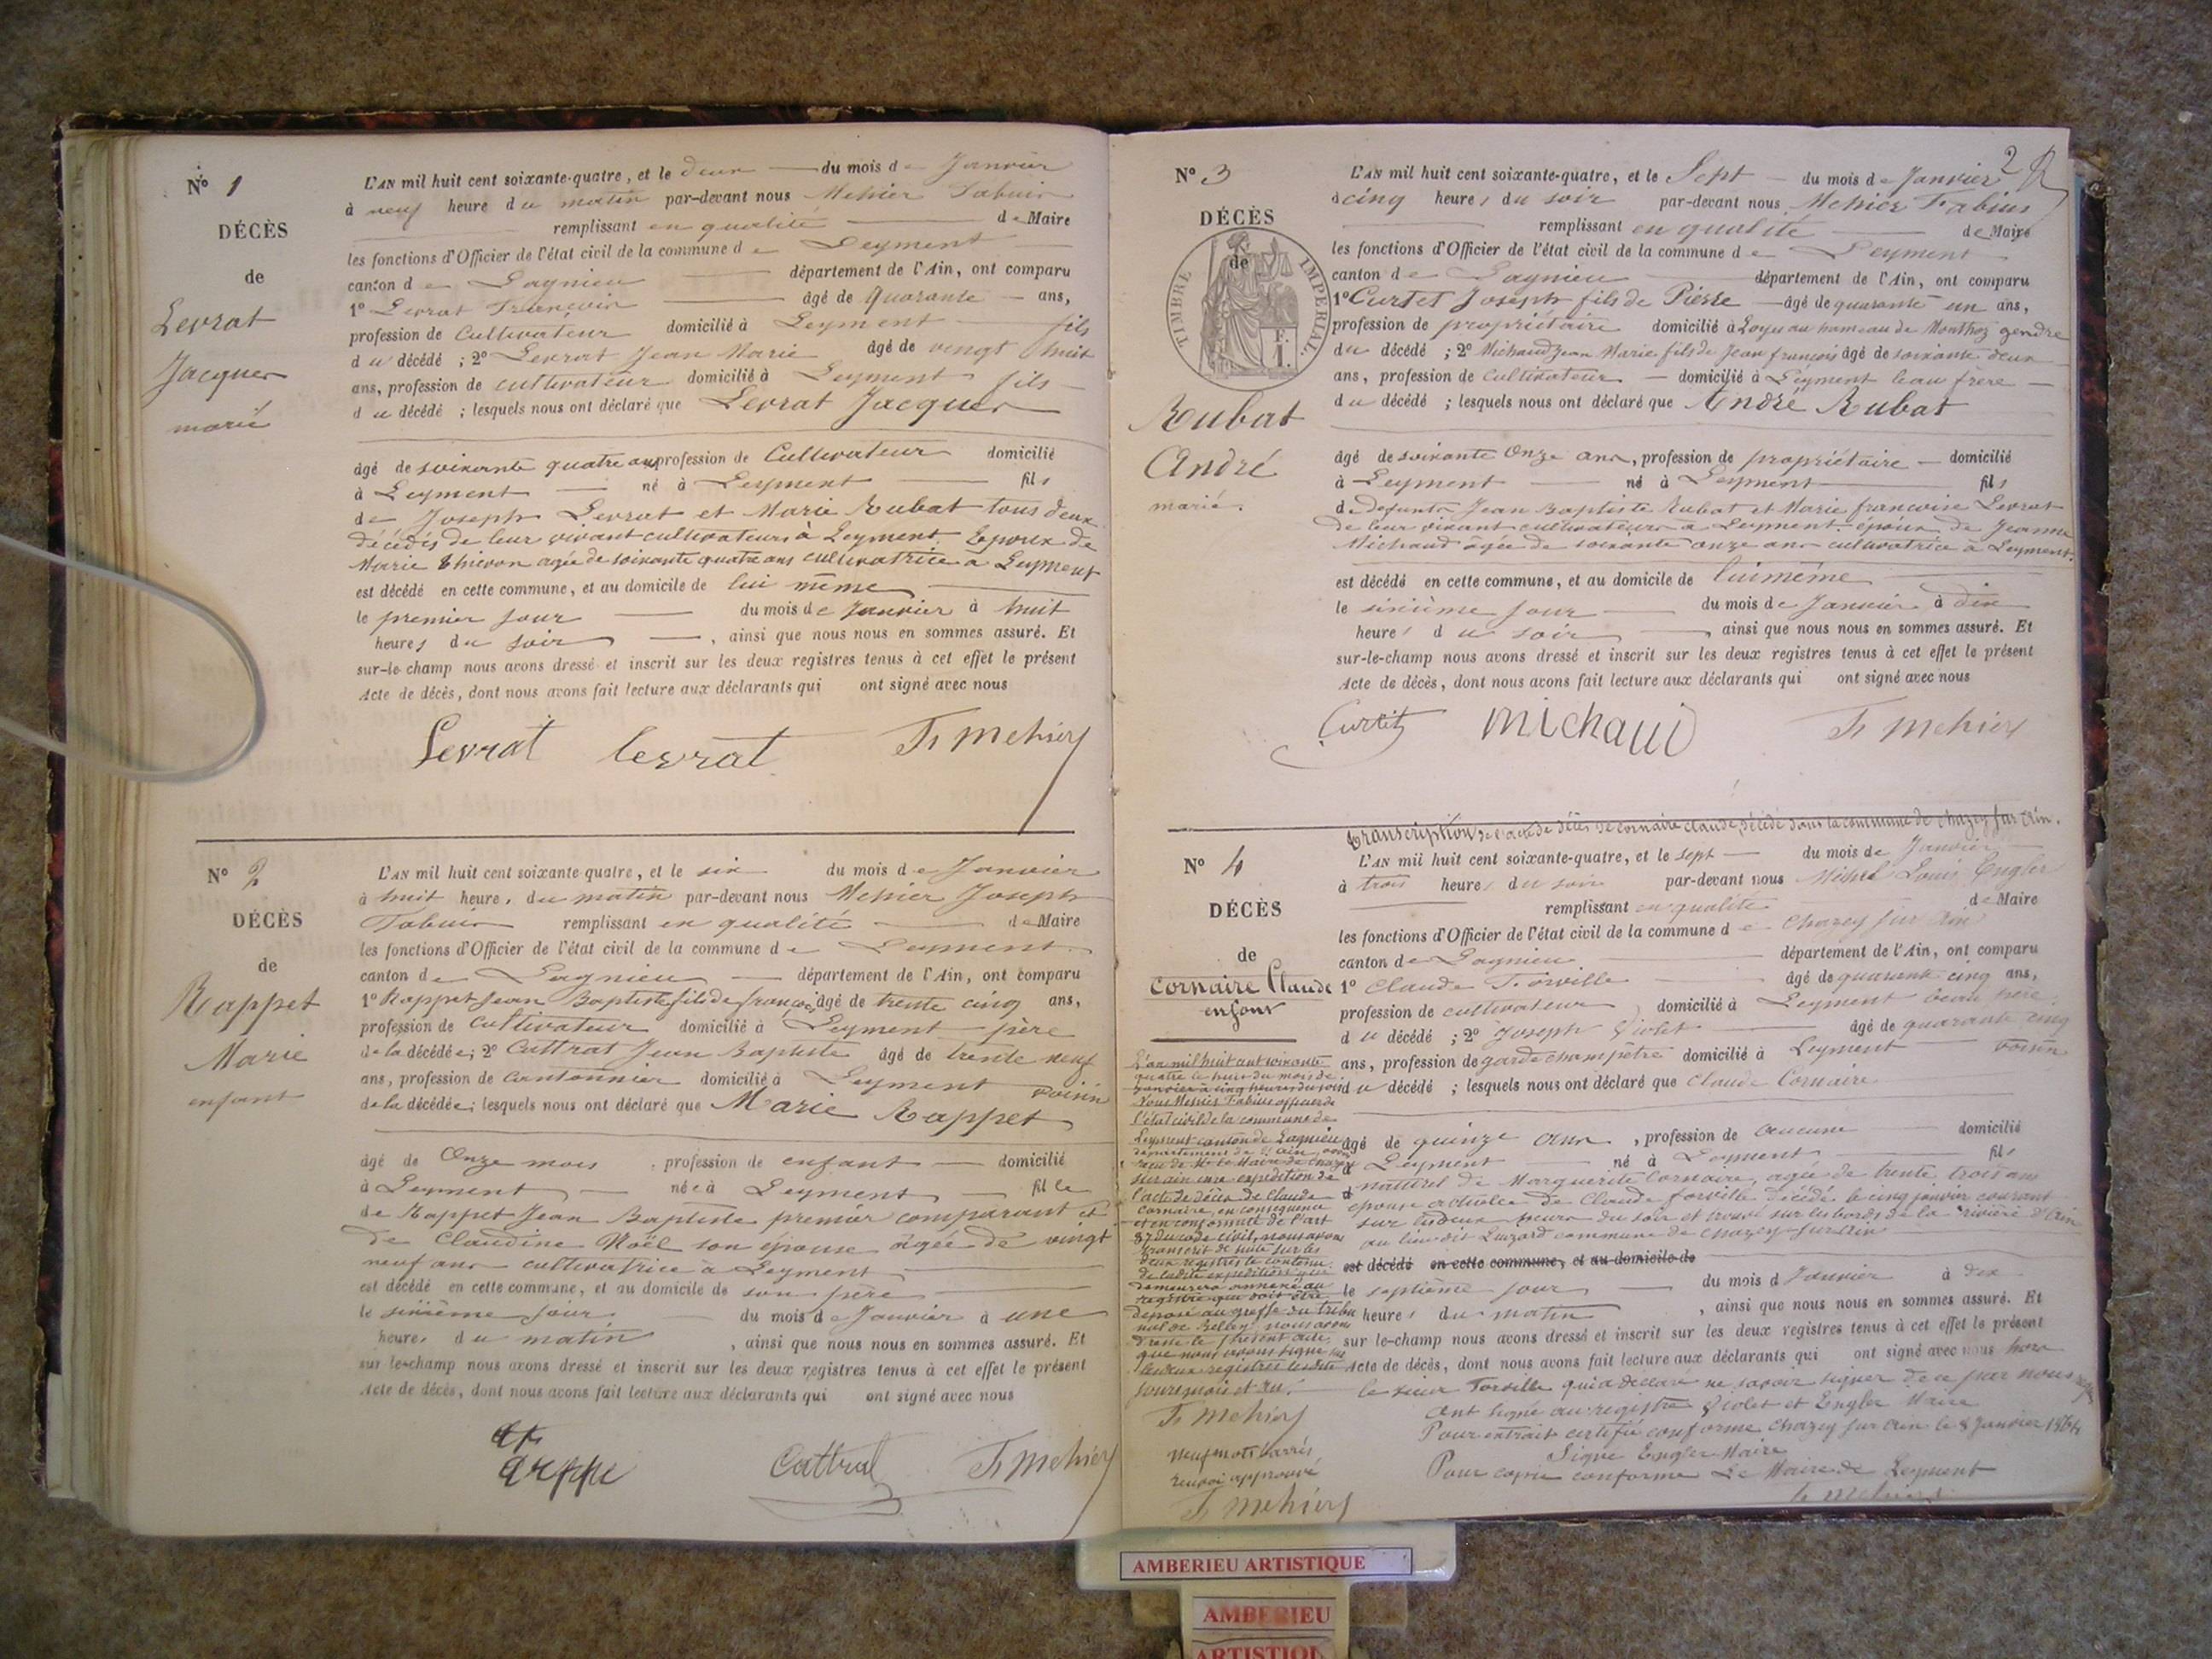 N° 1
DÉCÈS
de
Levrat
Jacques
marié
L'AN mil huit cent soixante-quatre, et le deux du mois de Janvier
à neuf heure du matin par-devant nous Mehier Fabius
remplissant en qualité de Maire
les fonctions d'Officier de l'état civil de la commune de Leyment
canton de Lagnieu département de l'Ain, ont comparu
1° Levrat François âgé de Quarante ans,
profession de Cultivateur domicilié à Leyment fils
du décédé ; 2° Levrat Jean Marie âgé de vingt huit
ans, profession de cultivateur domicilié à Leyment fils
du décédé ; lesquels nous ont déclaré que Levrat Jacques
âgé de soixante quatre ans profession de Cultivateur domicilié
à Leyment né à Leyment fils
de Joseph Levrat et Marie Rubat tous deux
décédés de leur vivant cultivateurs à Leyment Epoux de
Marie Thievon agée de soixante quatre ans cultivatrice a Leyment
est décédé en cette commune, et au domicile de lui même
le premier jour du mois de Janvier à huit
heures du soir, ainsi que nous nous en sommes assuré. Et
sur-le champ nous avons dressé et inscrit sur les deux registres tenus à cet effet le présent
Acte de décès, dont nous avons fait lecture aux déclarants qui ont signé avec nous
Levrat levrat F. Mehier
N° 2
DÉCÈS
de
Rappet
Marie
enfant
L'AN mil huit cent soixante-quatre, et le six du mois de Janvier
à huit heure, du matin par-devant nous Mehier Joseph
Fabius remplissant en qualité de Maire
les fonctions d'Officier de l'état civil de la commune de Leyment
canton de Lagnieu département de l'Ain, ont comparu
1° Rappet Jean Baptiste fils de françois âgé de trente cinq ans,
profession de cultivateur domicilié à Leyment père
de la décédée; 2° Cuttrat Jean Baptiste âgé de trente neuf
ans, profession de Cantonnier domicilié à Leyment voisin
de la décédée; lesquels nous ont déclaré que Marie Rappet
âgé de Onze mois, profession de enfant domicilié
à Leyment née à Leyment fille
de Rappet Jean Baptiste premier comparant et
de Claudine Noël son épouse âgée de vingt
neuf ans cultivatrice à Leyment
est décédé en cette commune, et au domicile de son père
le sixième jour du mois de Janvier à une
heure, du matin, ainsi que nous nous en sommes assuré. Et
sur le-champ nous avons dressé et inscrit sur les deux registres tenus à cet effet le présent
Acte de décès, dont nous avons fait lecture aux déclarants qui ont signé avec nous
F. Mehier
N° 3
DÉCÈS
de
TIMBRE IMPERIAL
F.
1.
Rubat
André
marié.
2
L'AN mil huit cent soixante-quatre, et le Sept du mois de Janvier
à cinq heures du soir par-devant nous Mehier Fabius
remplissant en qualité de Maire
les fonctions d'Officier de l'état civil de la commune de Leyment
canton de Lagnieu département de l'Ain, ont comparu
1° Curtet Joseph fils de Pierre âgé de quarante un ans,
profession de propriétaire domicilié à Loyes au hameau de Monthoz gendre
du décédé ; 2° Michaud Jean Marie fils de Jean françois âgé de soixante deux
ans, profession de Cultivateur domicilié à Leyment beau frère
du décédé ; lesquels nous ont déclaré que André Rubat
âgé de soixante Onze ans, profession de propriétaire domicilié
à Leyment né à Leyment fils
de Defunts Jean Baptiste Rubat et Marie françoise Levrat
de leur vivant cultivateurs a Leyment, époux de Jeanne
Michaud âgée de soixante onze ans cultivatrice à Leyment.
est décédé en cette commune, et au domicile de lui même
le sixième jour du mois de Janvier à dix
heures du soir ainsi que nous nous en sommes assuré. Et
sur-le-champ nous avons dressé et inscrit sur les deux registres tenus à cet effet le présent
Acte de décès, dont nous avons fait lecture aux déclarants qui ont signé avec nous
Curtet Michaud F. Mehier
Transcription de l'acte de décès de Cornaire Claude, décédé dans la commune de Chazey sur Ain.
N° 4
DÉCÈS
de
Cornaire Claude
enfant
L'AN mil huit cent soixante-quatre, et le sept du mois de Janvier
à trois heures du soir par-devant nous Michel Louis Engler
remplissant en qualité de Maire
les fonctions d'Officier de l'état civil de la commune de Chazey sur Ain
canton de Lagnieu département de l'Ain, ont comparu
1° Claude Forville âgé de quarante cinq ans,
profession de cultivateur domicilié à Leyment beau père
du décédé ; 2° Joseph Violet âgé de quarante cinq
ans, profession de garde champêtre domicilié à Leyment voisin
du décédé ; lesquels nous ont déclaré que Claude Cornaire
âgé de quinze ans, profession de aucune domicilié
à Leyment né à Leyment fils
naturel de Marguerite Cornaire, agée de trente trois ans
epouse actuelle de Claude forville décédé le cinq janvier courant
sur les deux heures du soir et trouvé sur les bords de la rivière d'Ain
au lieu dit Luizard commune de Chazey-sur-Ain
est décédé en cette commune, et au domicile de
le septième jour du mois d Janvier à dix
heures du matin, ainsi que nous nous en sommes assuré. Et
sur le-champ nous avons dressé et inscrit sur les deux registres tenus à cet effet le présent
Acte de décès, dont nous avons fait lecture aux déclarants qui ont signé avec nous hors
le sieur Forville qui a déclaré ne savoir signer de ce par nous
Ont signé au registre Violet et Engler Maire
Pour extrait certifié conforme Chazey sur Ain le 8 Janvier 1864
Signé Engler Maire
Pour copie conforme Le Maire de Leyment
F. Mehier
L'an mil huit cent soixante
quatre le huit du mois de
janvier à cinq heures du soir
Nous Mehier Fabius officier de
l'état civil de la commune de
Leyment canton de Lagnieu
département de l'Ain, avons
reçu de Mr le Maire de Chazey
sur ain une expédition de
l'acte de décès de Claude
Cornaire, en conséquence
et en conformité de l'art
87 du code civil, nous avons
transcrit de suite sur les
deux registres le contenu
de ladite expédition qui
demeurera annexé au
registre qui doit être
déposé au greffe du tribu
nal de Belley, nous avons
dressé le présent acte
que nous avons signé sur
les deux registres lesdits
jours, mois et an.
F. Mehier
Neuf mots barrés
Renvoi approuvé
F. Mehier
AMBERIEU ARTISTIQUE
AMBERIEU
ARTISTIQ